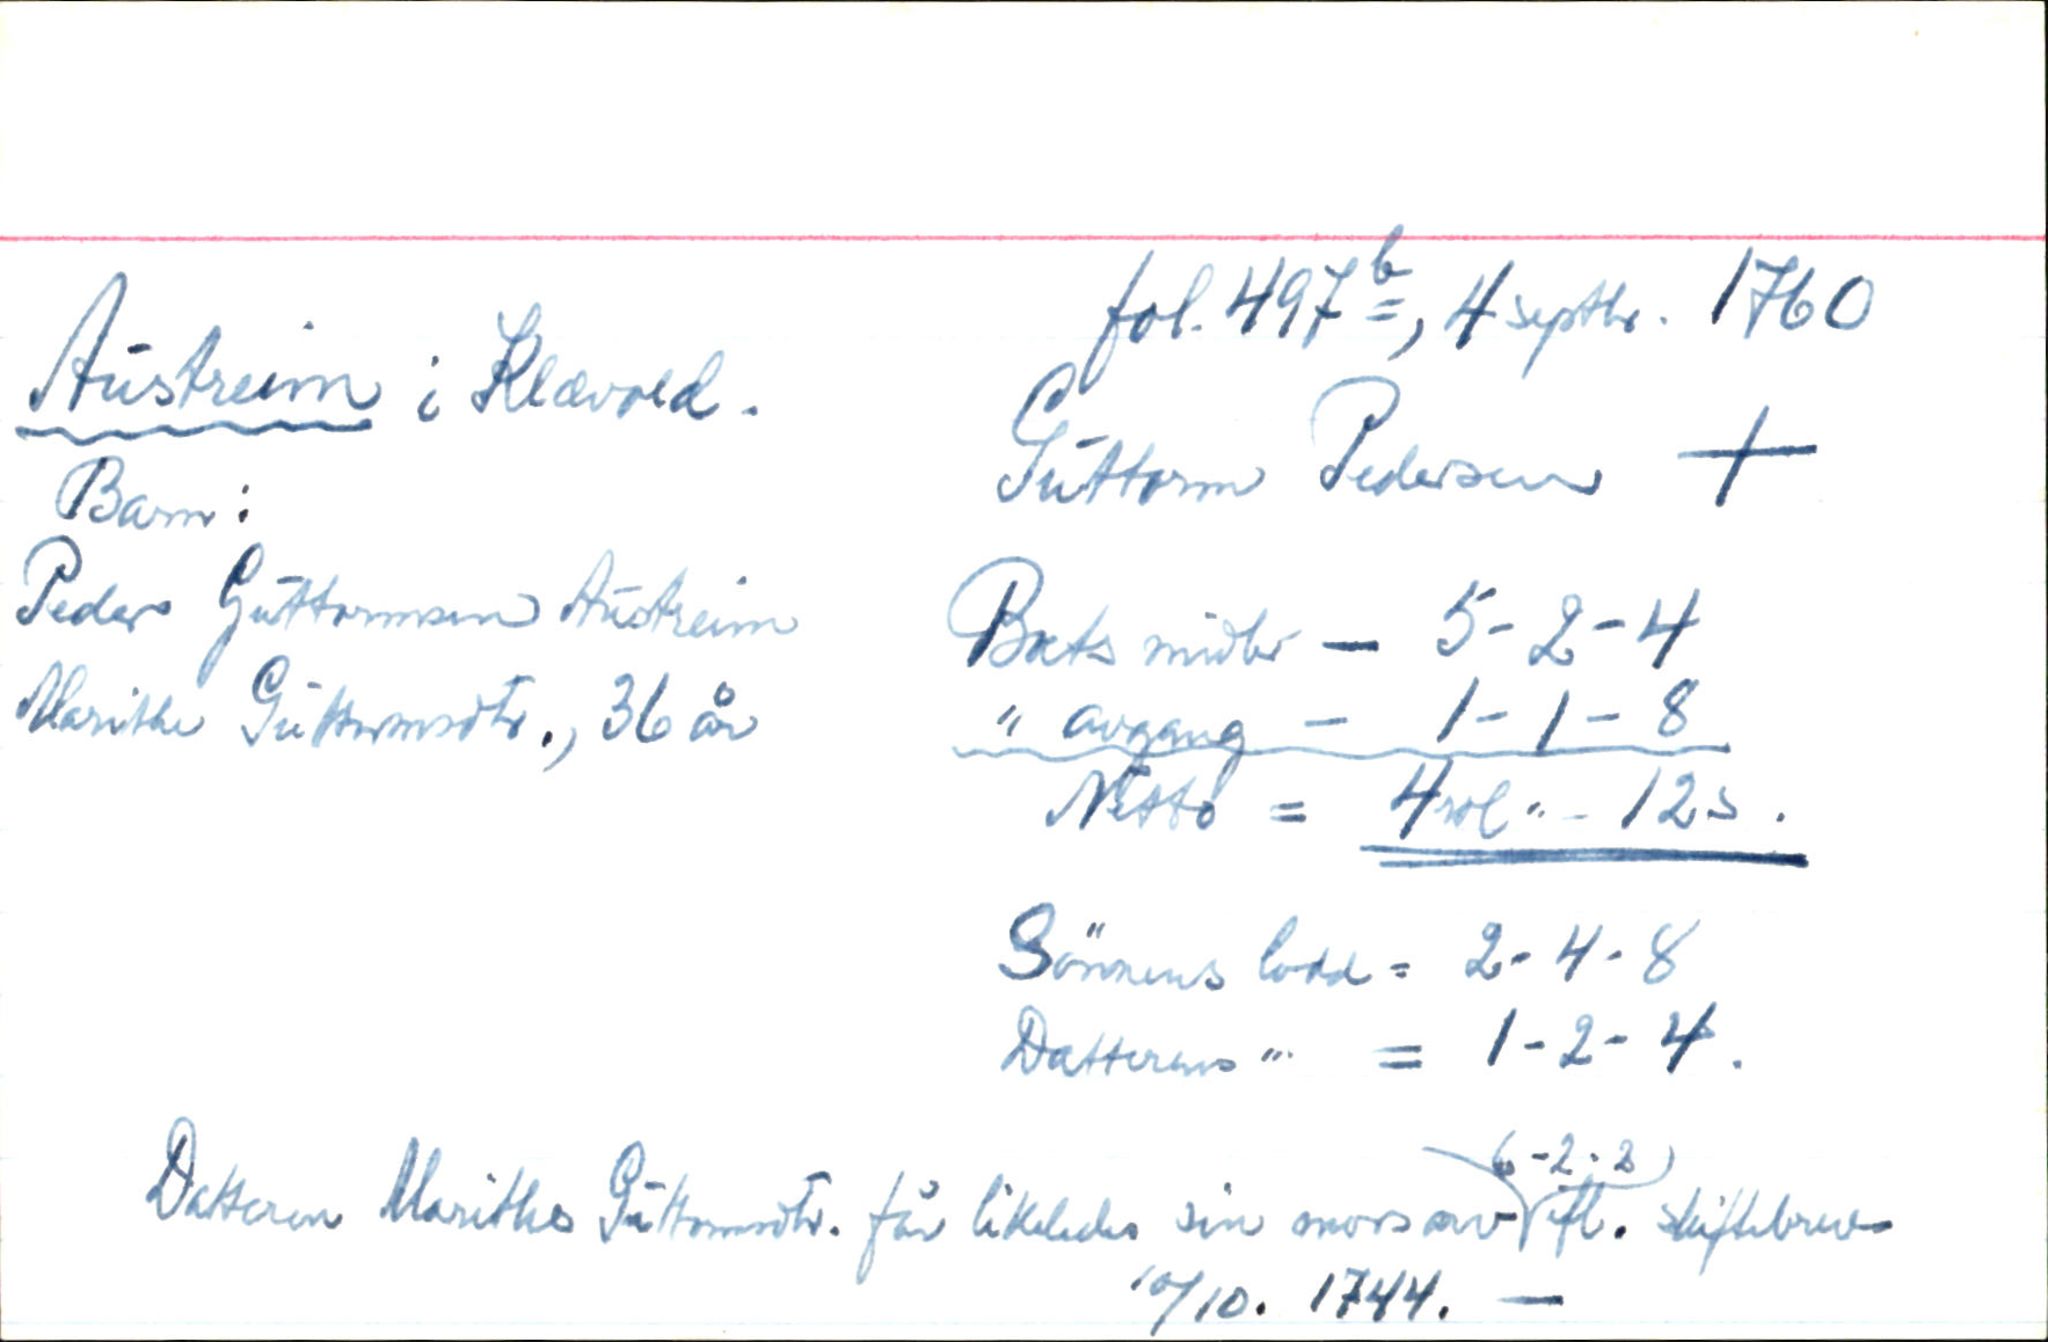 fol. 497 b, 4 septbr. 1760
Austreim i Klævold.
Guttorm Pedersen +
Barn:
Peder Guttormsen Austreim
Marithe Guttormsdtr., 36 år
Boets midler — 5-2-4
" avgang — 1-1-8
Netto = 4 rdl " - 12 s.
Sönnens lodd = 2-4-8
Datterens " = 1-2-4.
(6-2-2)
Datteren Marithe Guttormsdtr. får likeledes sin mors arv ifl. skiftebrev
10/10. 1744. —